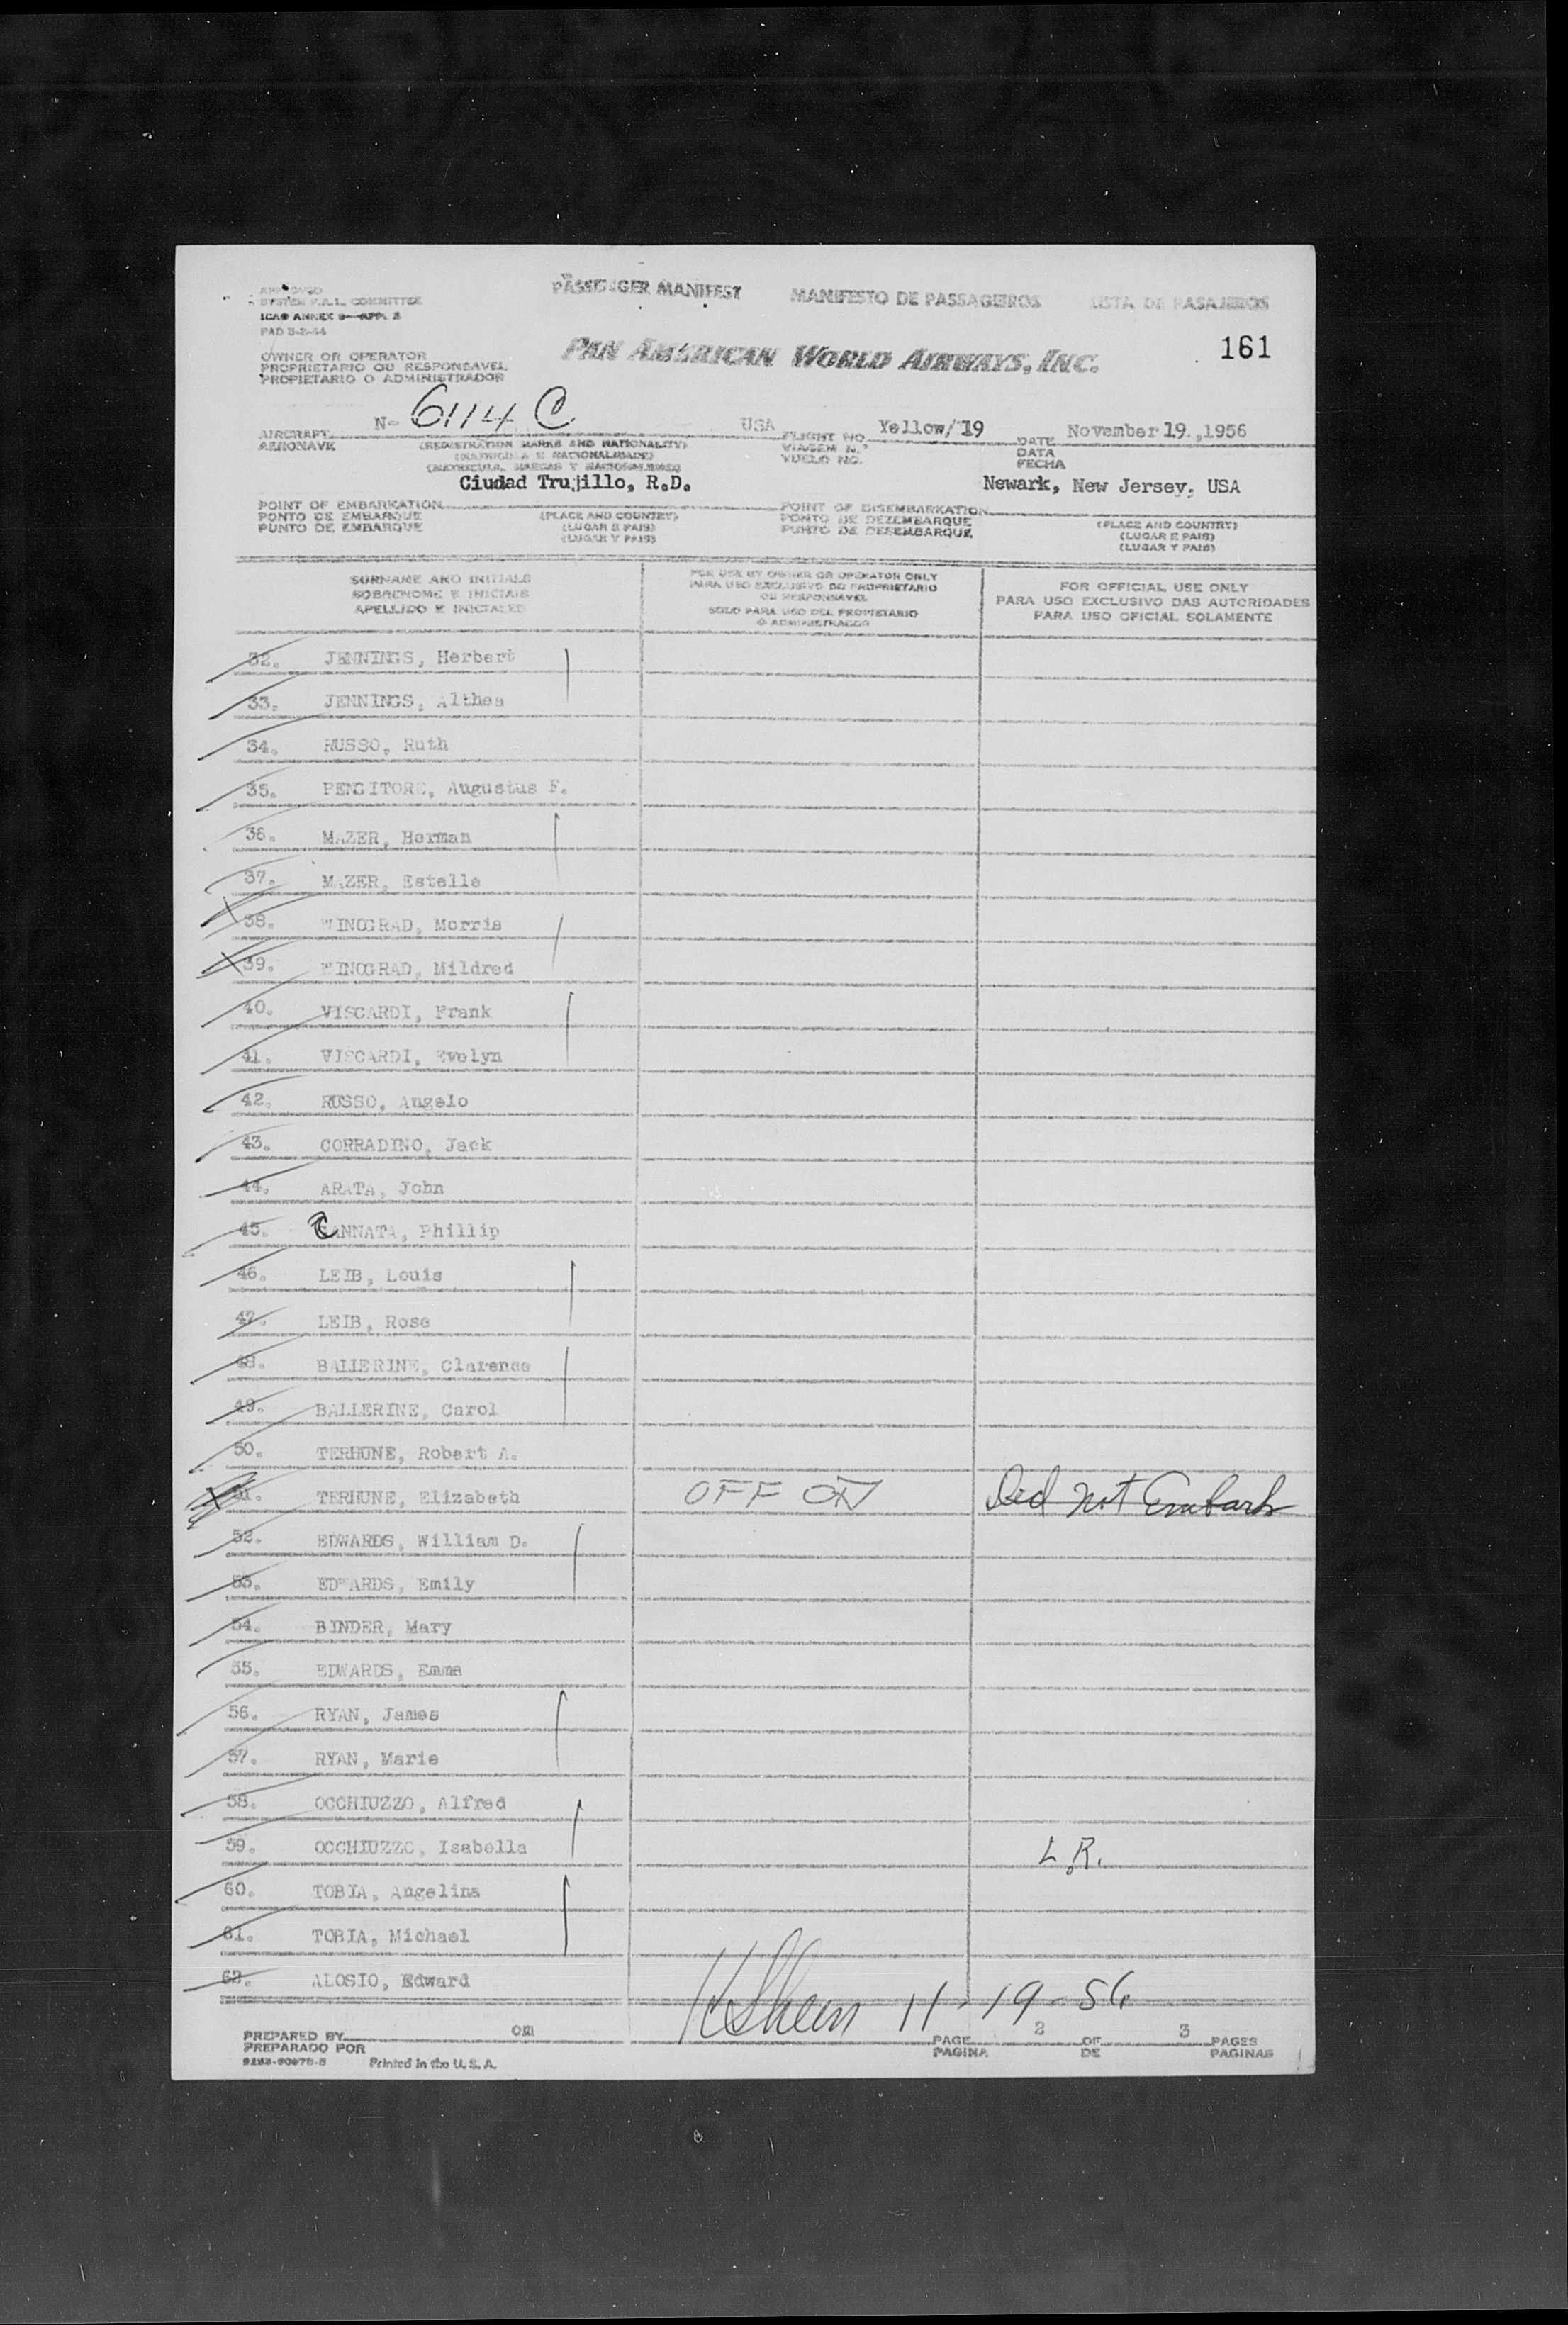 APPROVED
SYSTEM F.A.L. COMMITTEE
ICAO ANNEX 9—APP. 3
PAD 3-2-44
PASSENGER MANIFEST MANIFESTO DE PASSAGEIROS LISTA DE PASAJEROS
161
OWNER OR OPERATOR
PROPRIETARIO OU RESPONSAVEL
PROPIETARIO O ADMINISTRADOR
PAN AMERICAN WORLD AIRWAYS, INC.
AIRCRAFT N- 6114 C USA FLIGHT NO. Yellow/19 DATE November 19.,1956
AERONAVE (REGISTRATION MARKS AND NATIONALITY) VIAGEM N.º DATA
(MATRICULA E NACIONALIDADE) VUELO NO. FECHA
(MATRICULA, MARCAS Y NACIONALIDAD)
Ciudad Trujillo, R.D. Newark, New Jersey. USA
POINT OF EMBARKATION POINT OF DISEMBARKATION
PONTO DE EMBARQUE (PLACE AND COUNTRY) PONTO DE DEZEMBARQUE (PLACE AND COUNTRY)
PUNTO DE EMBARQUE (LUGAR E PAIS) PUNTO DE DESEMBARQUE (LUGAR E PAIS)
(LUGAR Y PAIS) (LUGAR Y PAIS)
SURNAME AND INITIALS
SOBRENOME E INICIAIS
APELLIDO E INICIALES
FOR USE BY OWNER OR OPERATOR ONLY
PARA USO EXCLUSIVO DO PROPRIETARIO
OU RESPONSAVEL
SOLO PARA USO DEL PROPIETARIO
O ADMINISTRADOR
FOR OFFICIAL USE ONLY
PARA USO EXCLUSIVO DAS AUTORIDADES
PARA USO OFICIAL SOLAMENTE
32. JENNINGS, Herbert
33. JENNINGS, Althea
34. RUSSO, Ruth
35. PENGITORE, Augustus F.
36. MAZER, Herman
37. MAZER, Estelle
38. WINOGRAD, Morris
39. WINOGRAD, Mildred
40. VISCARDI, Frank
41. VISCARDI, Evelyn
42. RUSSO, Angelo
43. CORRADINO, Jack
44. ARATA, John
45. CANNATA, Phillip
46. LEIB, Louis
47. LEIB, Rose
48. BALLERINE, Clarence
49. BALLERINE, Carol
50. TERHUNE, Robert A.
51. TERHUNE, Elizabeth OFF ON Did not Embark
52. EDWARDS, William D.
53. EDWARDS, Emily
54. BINDER, Mary
55. EDWARDS, Emma
56. RYAN, James
57. RYAN, Marie
58. OCCHIUZZO, Alfred
59. OCCHIUZZO, Isabella L.R.
60. TOBIA, Angelina
61. TOBIA, Michael
62. ALOSIO, Edward
11-19-56
PREPARED BY PAGE 2 OF 3 PAGES
PREPARADO POR PAGINA DE PAGINAS
Printed in the U. S. A.